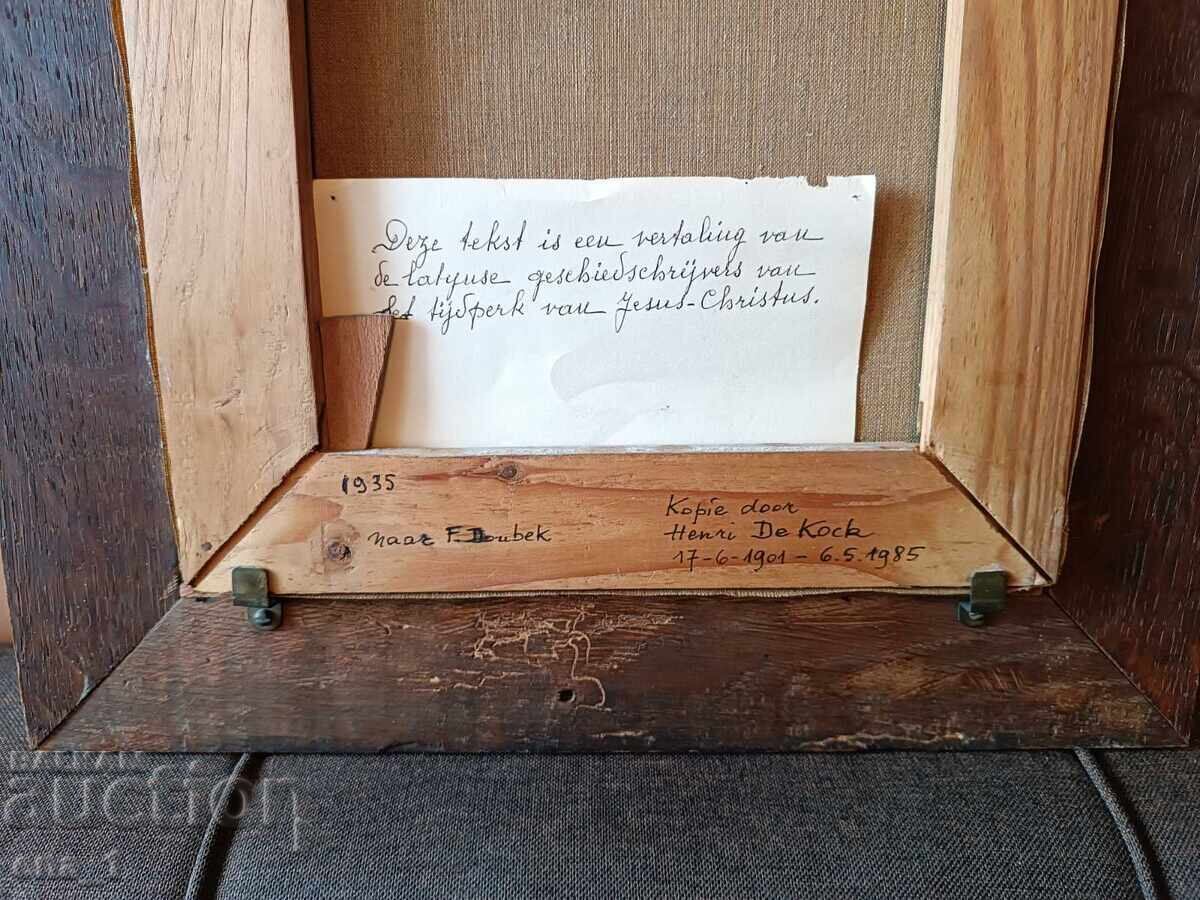 Deze tekst is een vertaling van
de latynse geschiedschrijvers van
het tijdperk van Jesus-Christus.
1935
naar F. Doubek
Kopie door
Henri De Kock
17-6-1901 - 6.5.1985
BALKAN
auction
cna_1